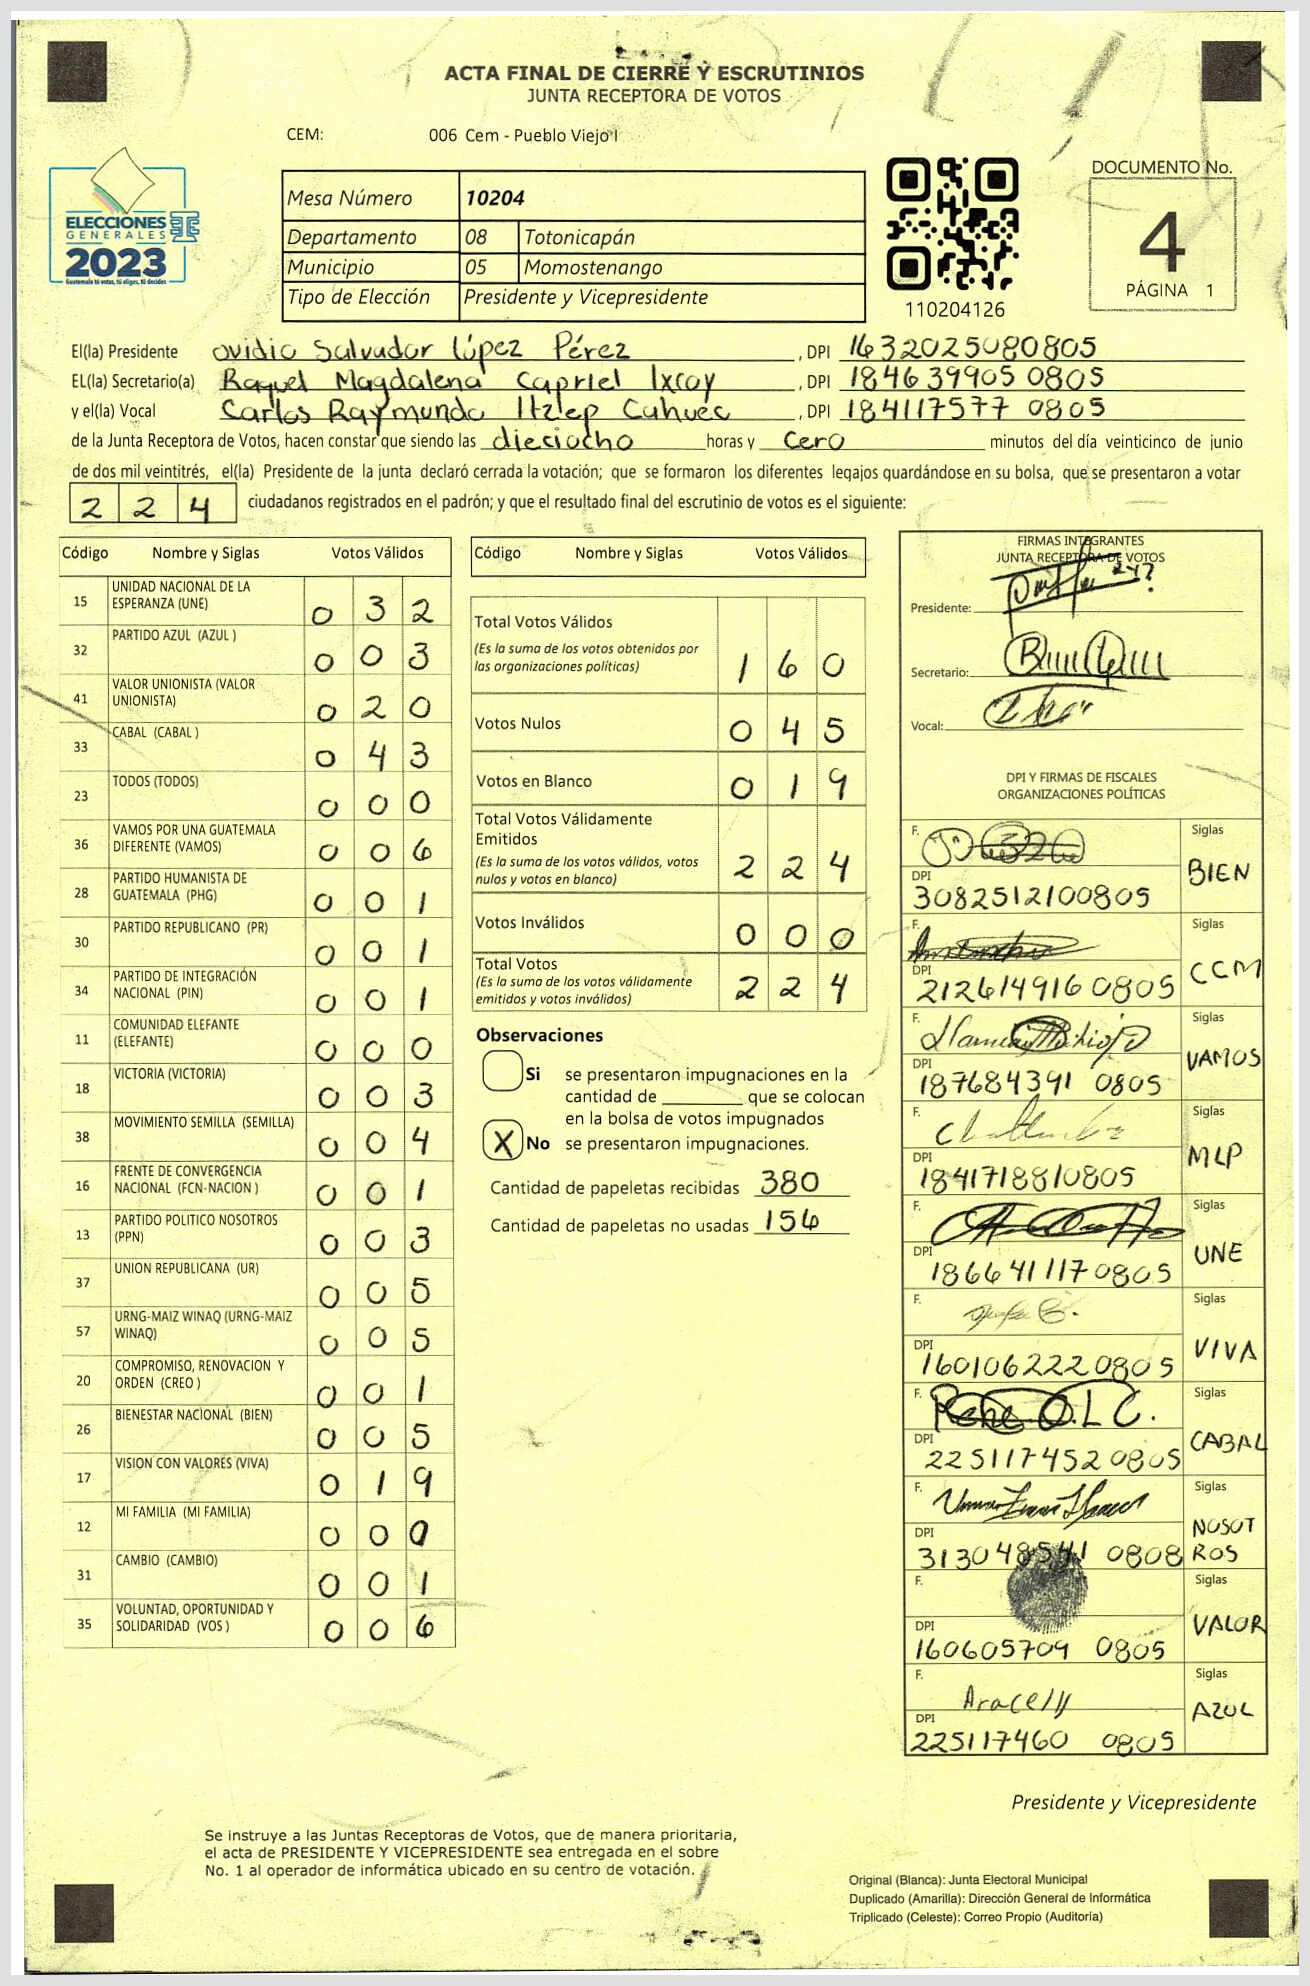 ACTA FINAL DE CIERRE Y ESCRUTINIOS
JUNTA RECEPTORA DE VOTOS
CEM: 006 Cem - Pueblo Viejo I
ELECCIONES
GENERALES
2023
Guatemala tú votas, tú eliges, tú decides
Mesa Número 10204
Departamento 08 Totonicapán
Municipio 05 Momostenango
Tipo de Elección Presidente y Vicepresidente
110204126
DOCUMENTO No.
4
PÁGINA 1
El(la) Presidente Ovidio Salvador López Pérez , DPI 1632025080805
EL(la) Secretario(a) Raquel Magdalena Capriel Ixcoy , DPI 184639905 0805
y el(la) Vocal Carlos Raymundo Itzep Cahuec , DPI 184117577 0805
de la Junta Receptora de Votos, hacen constar que siendo las dieciocho horas y cero minutos del día veinticinco de junio
de dos mil veintitrés, el(la) Presidente de la junta declaró cerrada la votación; que se formaron los diferentes legajos guardándose en su bolsa, que se presentaron a votar
224 ciudadanos registrados en el padrón; y que el resultado final del escrutinio de votos es el siguiente:
Código Nombre y Siglas Votos Válidos
15 UNIDAD NACIONAL DE LA ESPERANZA (UNE) 032
32 PARTIDO AZUL (AZUL ) 003
41 VALOR UNIONISTA (VALOR UNIONISTA) 020
33 CABAL (CABAL ) 043
23 TODOS (TODOS) 000
36 VAMOS POR UNA GUATEMALA DIFERENTE (VAMOS) 006
28 PARTIDO HUMANISTA DE GUATEMALA (PHG) 001
30 PARTIDO REPUBLICANO (PR) 001
34 PARTIDO DE INTEGRACIÓN NACIONAL (PIN) 001
11 COMUNIDAD ELEFANTE (ELEFANTE) 000
18 VICTORIA (VICTORIA) 003
38 MOVIMIENTO SEMILLA (SEMILLA) 004
16 FRENTE DE CONVERGENCIA NACIONAL (FCN-NACION ) 001
13 PARTIDO POLITICO NOSOTROS (PPN) 003
37 UNION REPUBLICANA (UR) 005
57 URNG-MAIZ WINAQ (URNG-MAIZ WINAQ) 005
20 COMPROMISO, RENOVACION Y ORDEN (CREO ) 001
26 BIENESTAR NACIONAL (BIEN) 005
17 VISION CON VALORES (VIVA) 019
12 MI FAMILIA (MI FAMILIA) 000
31 CAMBIO (CAMBIO) 001
35 VOLUNTAD, OPORTUNIDAD Y SOLIDARIDAD (VOS ) 006
Código Nombre y Siglas Votos Válidos
Total Votos Válidos 160
(Es la suma de los votos obtenidos por
las organizaciones políticas)
Votos Nulos 045
Votos en Blanco 019
Total Votos Válidamente
Emitidos 224
(Es la suma de los votos válidos, votos
nulos y votos en blanco)
Votos Inválidos 000
Total Votos 224
(Es la suma de los votos válidamente
emitidos y votos inválidos)
Observaciones
Si se presentaron impugnaciones en la
cantidad de ________ que se colocan
en la bolsa de votos impugnados
X No se presentaron impugnaciones.
Cantidad de papeletas recibidas 380
Cantidad de papeletas no usadas 156
FIRMAS INTEGRANTES
JUNTA RECEPTORA DE VOTOS
Presidente:
Secretario:
Vocal:
DPI Y FIRMAS DE FISCALES
ORGANIZACIONES POLÍTICAS
F. Siglas BIEN
DPI 3082512100805
F. Siglas CCM
DPI 212614916 0805
F. Siglas VAMOS
DPI 187684391 0805
F. Siglas MLP
DPI 1841718810805
F. Siglas UNE
DPI 1866411170805
F. Siglas VIVA
DPI 1601062220805
F. Siglas CABAL
DPI 225117452 0805
F. Siglas NOSOTROS
DPI 0808
F. Siglas VALOR
DPI 160605709 0805
F. Aracely Siglas AZUL
DPI 225117460 0805
Presidente y Vicepresidente
Se instruye a las Juntas Receptoras de Votos, que de manera prioritaria,
el acta de PRESIDENTE Y VICEPRESIDENTE sea entregada en el sobre
No. 1 al operador de informática ubicado en su centro de votación.
Original (Blanca): Junta Electoral Municipal
Duplicado (Amarilla): Dirección General de Informática
Triplicado (Celeste): Correo Propio (Auditoría)